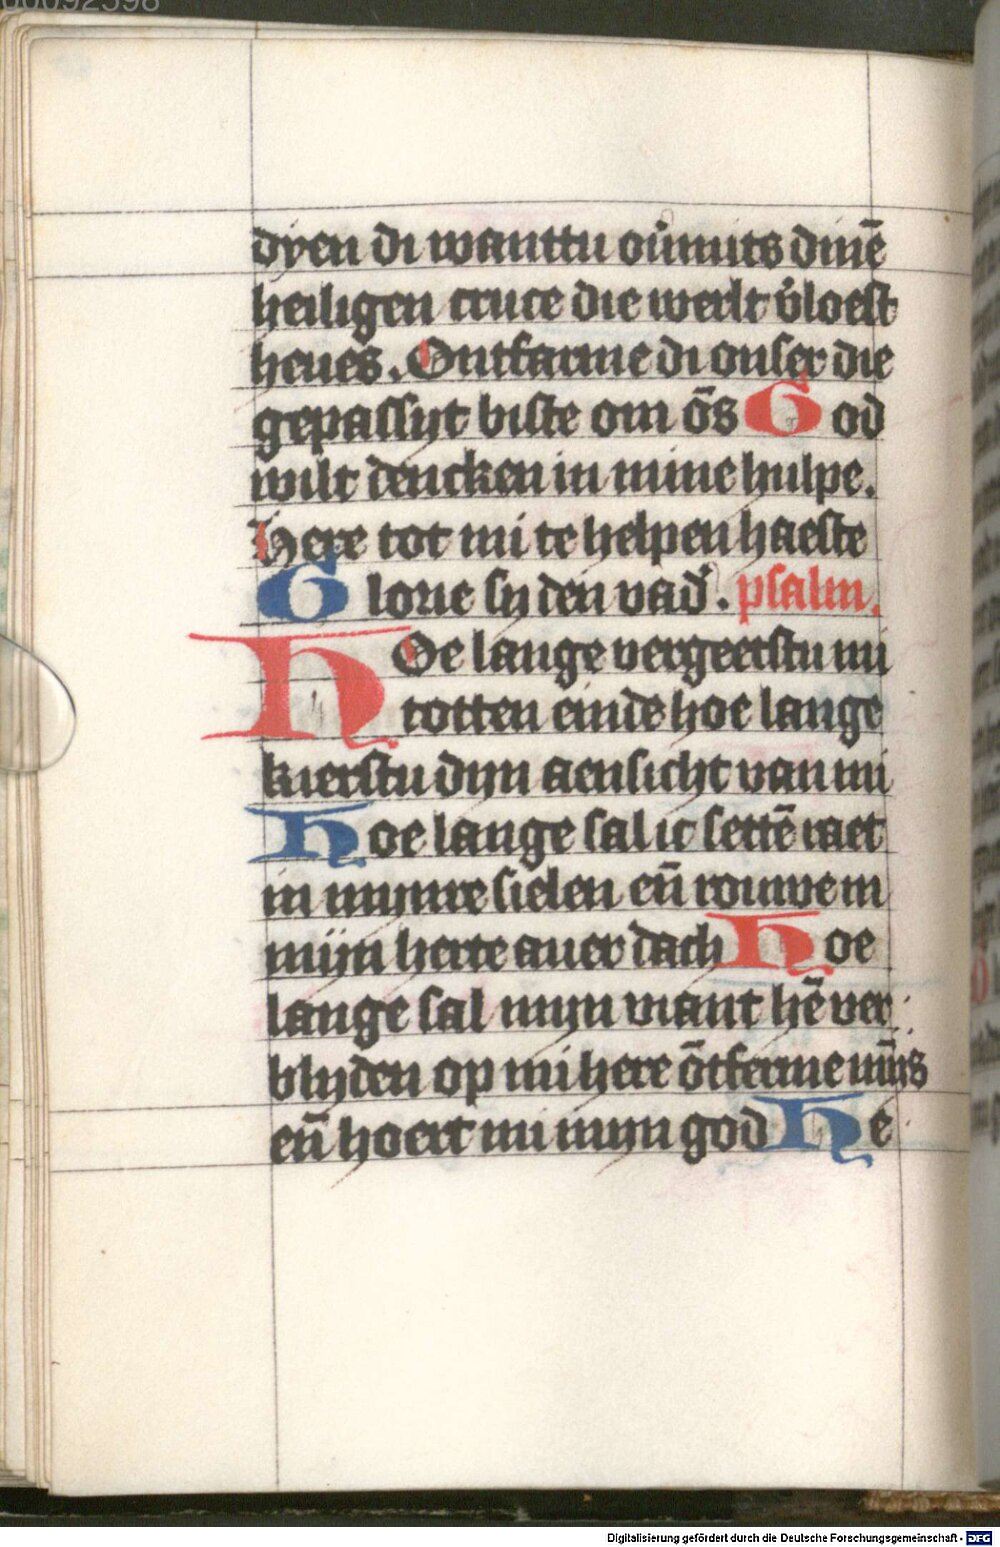 dyen di wanttu ou̇mits dinē
heiligen cruce die werlt v̇loest
heues. Ontfarme di onser die
gepassijt biste om ōs God
wilt dencken in mine hulpe.
Here tot mi te helpen haeste
Glorie sij den vad̛. psalm.
HOe lange vergeetstu mi
totten einde hoe lange
kierstu dijn aensicht van mi
Hoe lange sal ic settē raet
in mijnre sielen en̄ rouwe in
mijn herte auer dach Hoe
lange sal mijn viant hē ver
blijden op mi here ōtferme mijs
en̄ hoert mi mijn god He
Digitalisierung gefördert durch die Deutsche Forschungsgemeinschaft - DFG